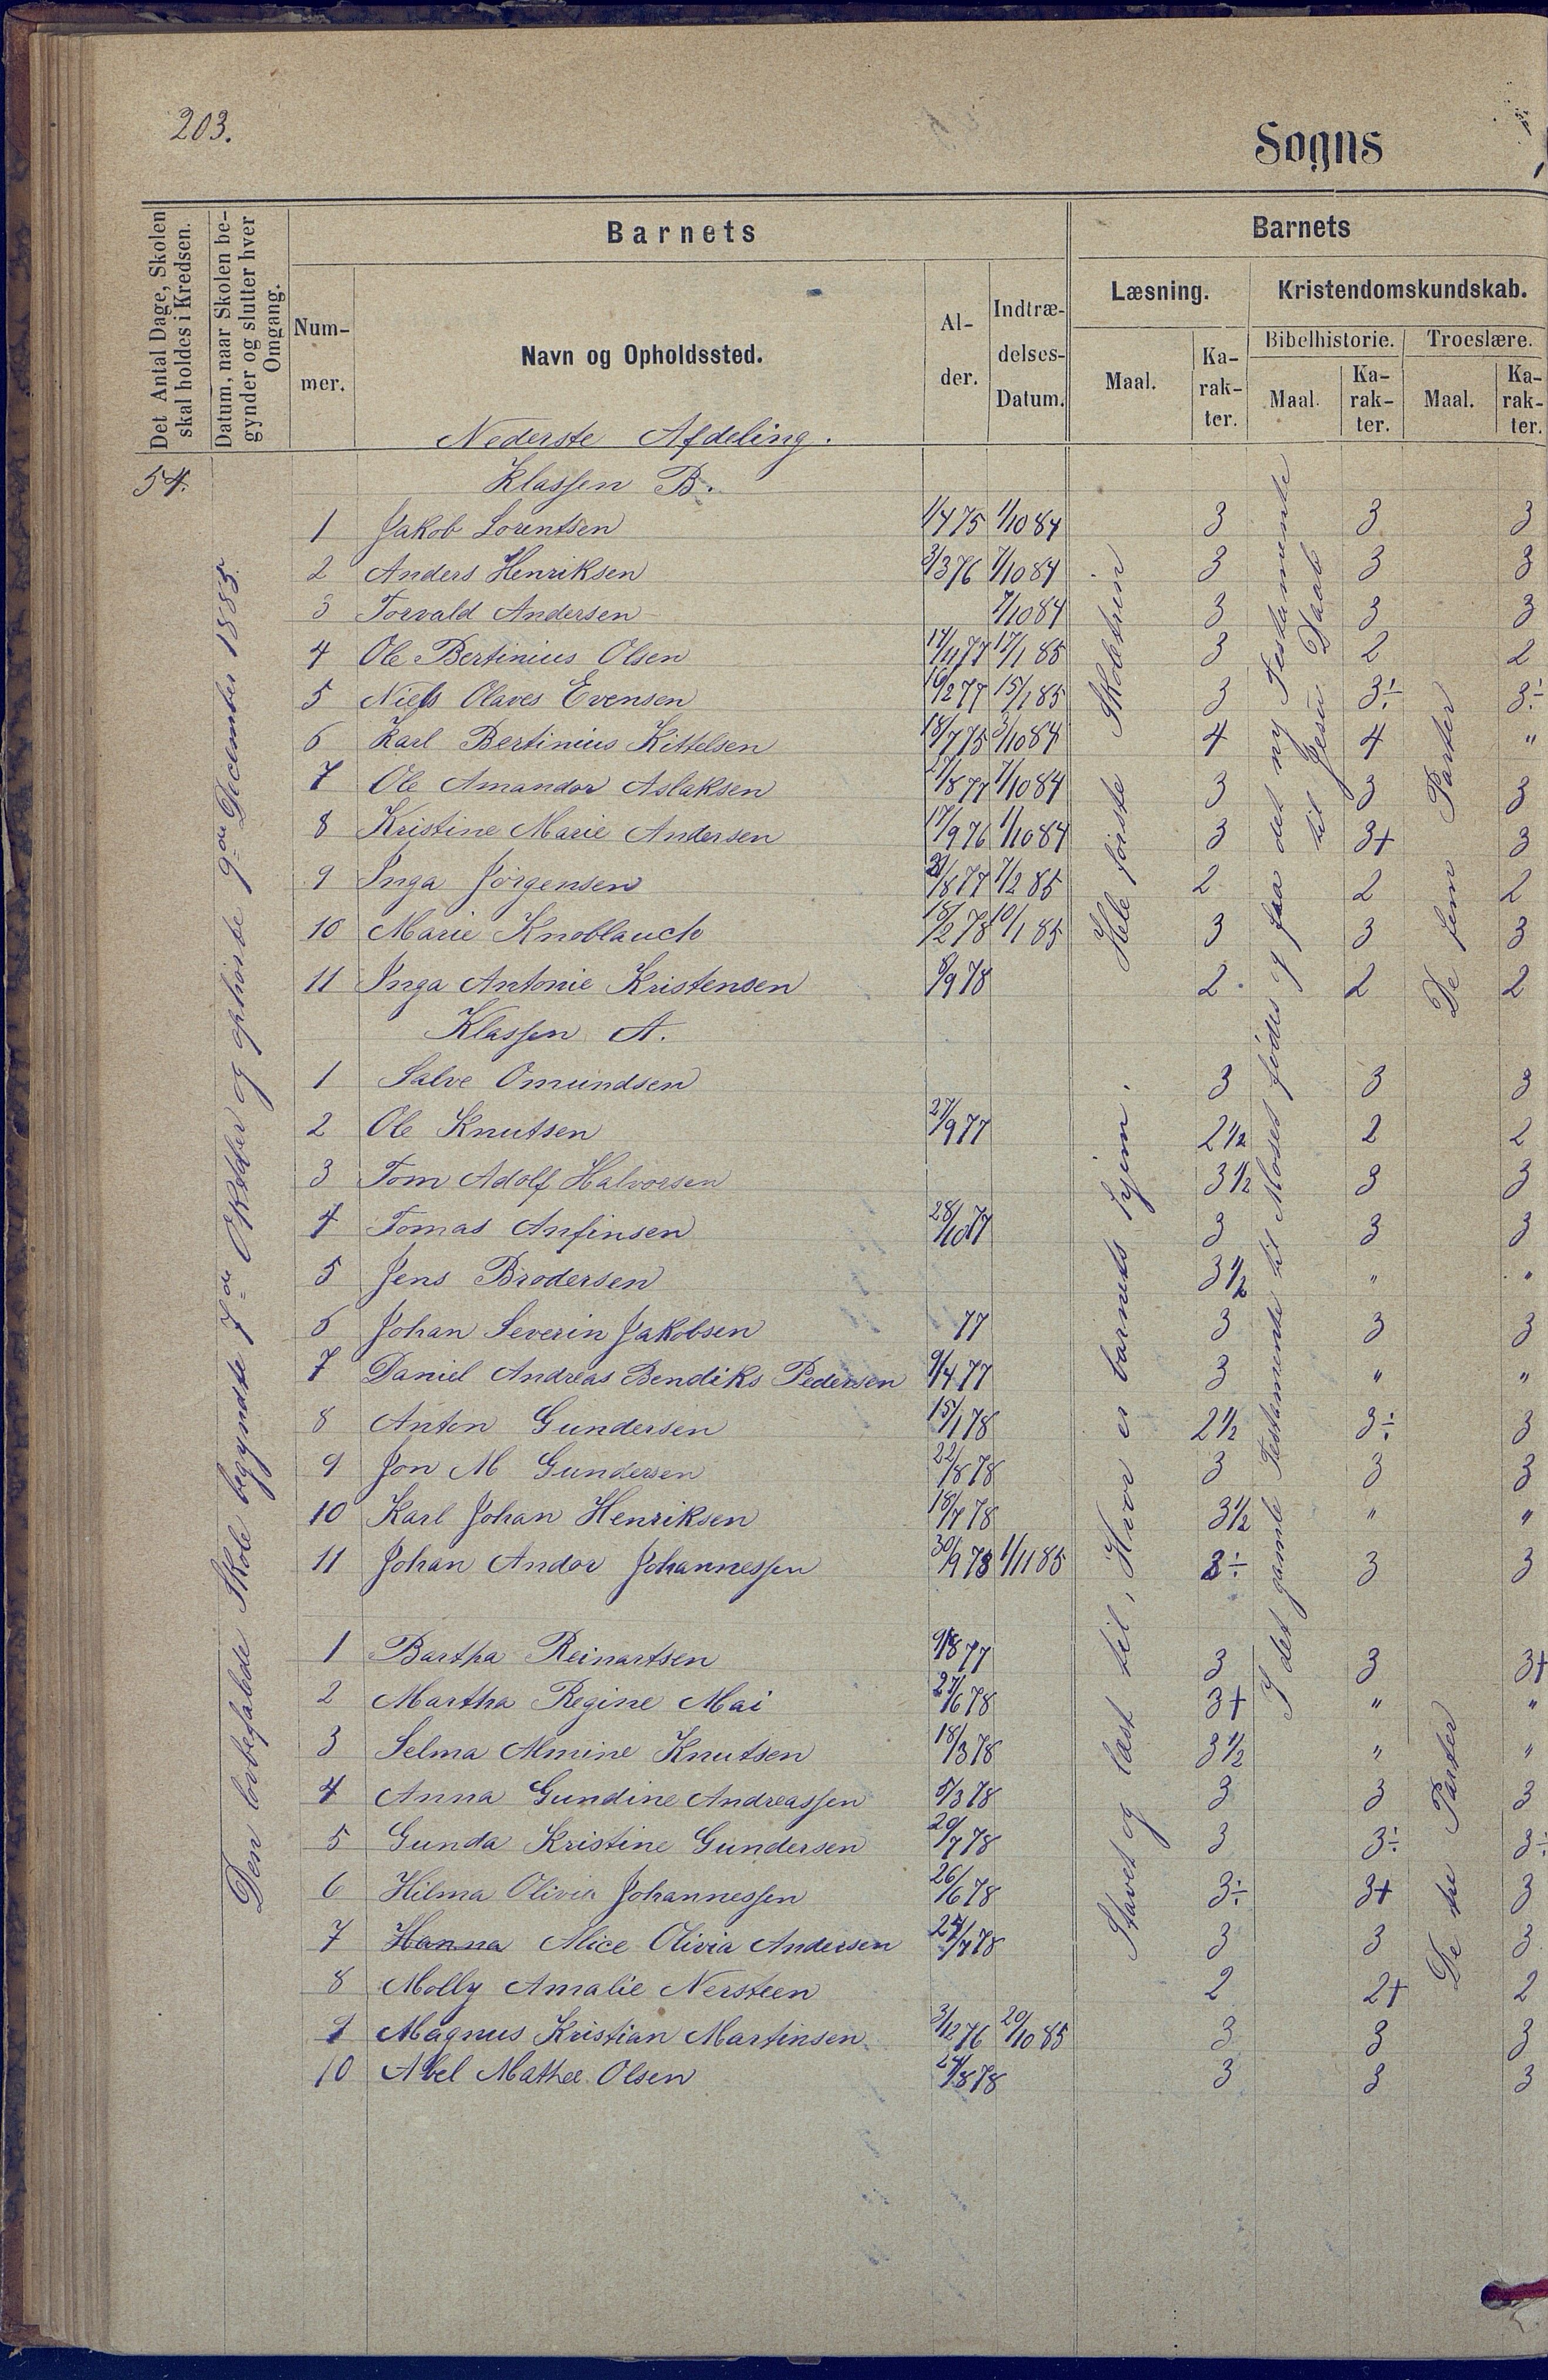 203.
Sogns
Det Antal Dage, Skolen
skal holdes i Kredsen.
Datum, naar Skolen be-
gynder og slutter hver
Omgang.
Barnets
Num-
mer.
Navn og Opholdssted.
Al-
der.
Indtræ-
delses-
Datum.
Barnets
Læsning.
Maal.
Ka-
rak-
ter.
Kristendomskundskab.
Bibelhistorie.
Maal.
Ka-
rak-
ter.
Troeslære.
Maal.
Ka-
rak-
ter.
Nederste Afdeling.
54.
Klassen B.
1 Jakob Lorentsen 1/4 75 1/10 84 3 3 3
2 Anders Henriksen 3/3 76 7/10 84 3 3 3
3 Torvald Andersen 7/10 84 3 3 3
4 Ole Bertinius Olsen 14/11 77 17/1 85 3 2 2
5 Niels Olaves Evensen 16/2 77 15/1 85 3 3÷ 3÷
6 Karl Bertinius Kittelsen 18/7 75 3/10 84 4 4 "
7 Ole Amandor Aslaksen 27/8 77 7/10 84 3 3 3
8 Kristine Marie Andersen 17/9 76 1/10 84 3 3+ 3
9 Inga Jørgensen /8 77 7/2 85 2 2 2
10 Marie Knoblauch 18/2 78 10/1 85 3 3 3
11 Inga Antonie Kristensen 8/9 78 2 2 2
Klassen A.
1 Salve Omundsen 3 3 3
2 Ole Knutsen 27/9 77 2 1/2 2 2
3 Tom Adolf Halvorsen 3 1/2 3 3
4 Tomas Anfinsen 28/10 77 3 3 3
5 Jens Brodersen 3 1/2 " "
6 Johan Severin Jakobsen 77 3 3 3
7 Daniel Andreas Bendiks Pedersen 9/4 77 3 " "
8 Anton Gundersen 15/1 78 2 1/2 3÷ 3
9 Jon M Gundersen 22/8 78 3 3 3
10 Karl Johan Henriksen 18/7 78 3 1/2 " "
11 Johan Andor Johannessen 30/9 78 1/11 85 3÷ 3 3
1 Bartha Reinartsen 9/8 77 3 3 3+
2 Martha Regine Mai 27/6 78 3+ " "
3 Selma Almine Knutsen 18/3 78 3 1/2 " "
4 Anna Gundine Andreassen 5/3 78 3 3 3
5 Gunda Kristine Gundersen 20/7 78 3 3÷ 3÷
6 Hilma Olivia Johannessen 26/6 78 3÷ 3+ 3
7 Hanna Alice Olivia Andersen 27/7 78 3 3 3
8 Molly Amalie Nersteen 2 2+ 2
9 Magnus Kristian Martinsen 3/12 76 20/10 85 3 3 3
10 Abel Mathea Olsen 24/8 78 3 3 3
Den lovbefalede Skole begyndte 7de Oktober og ophørte 9de December 1885.
Hele første Skoletrin
Stavet og læst til, Hvor er barnets hjem.
I det gamle Testamente til Moses fødes og fra det ny Testamente
til Jesu Daab
De fem Parter
De tre Parter